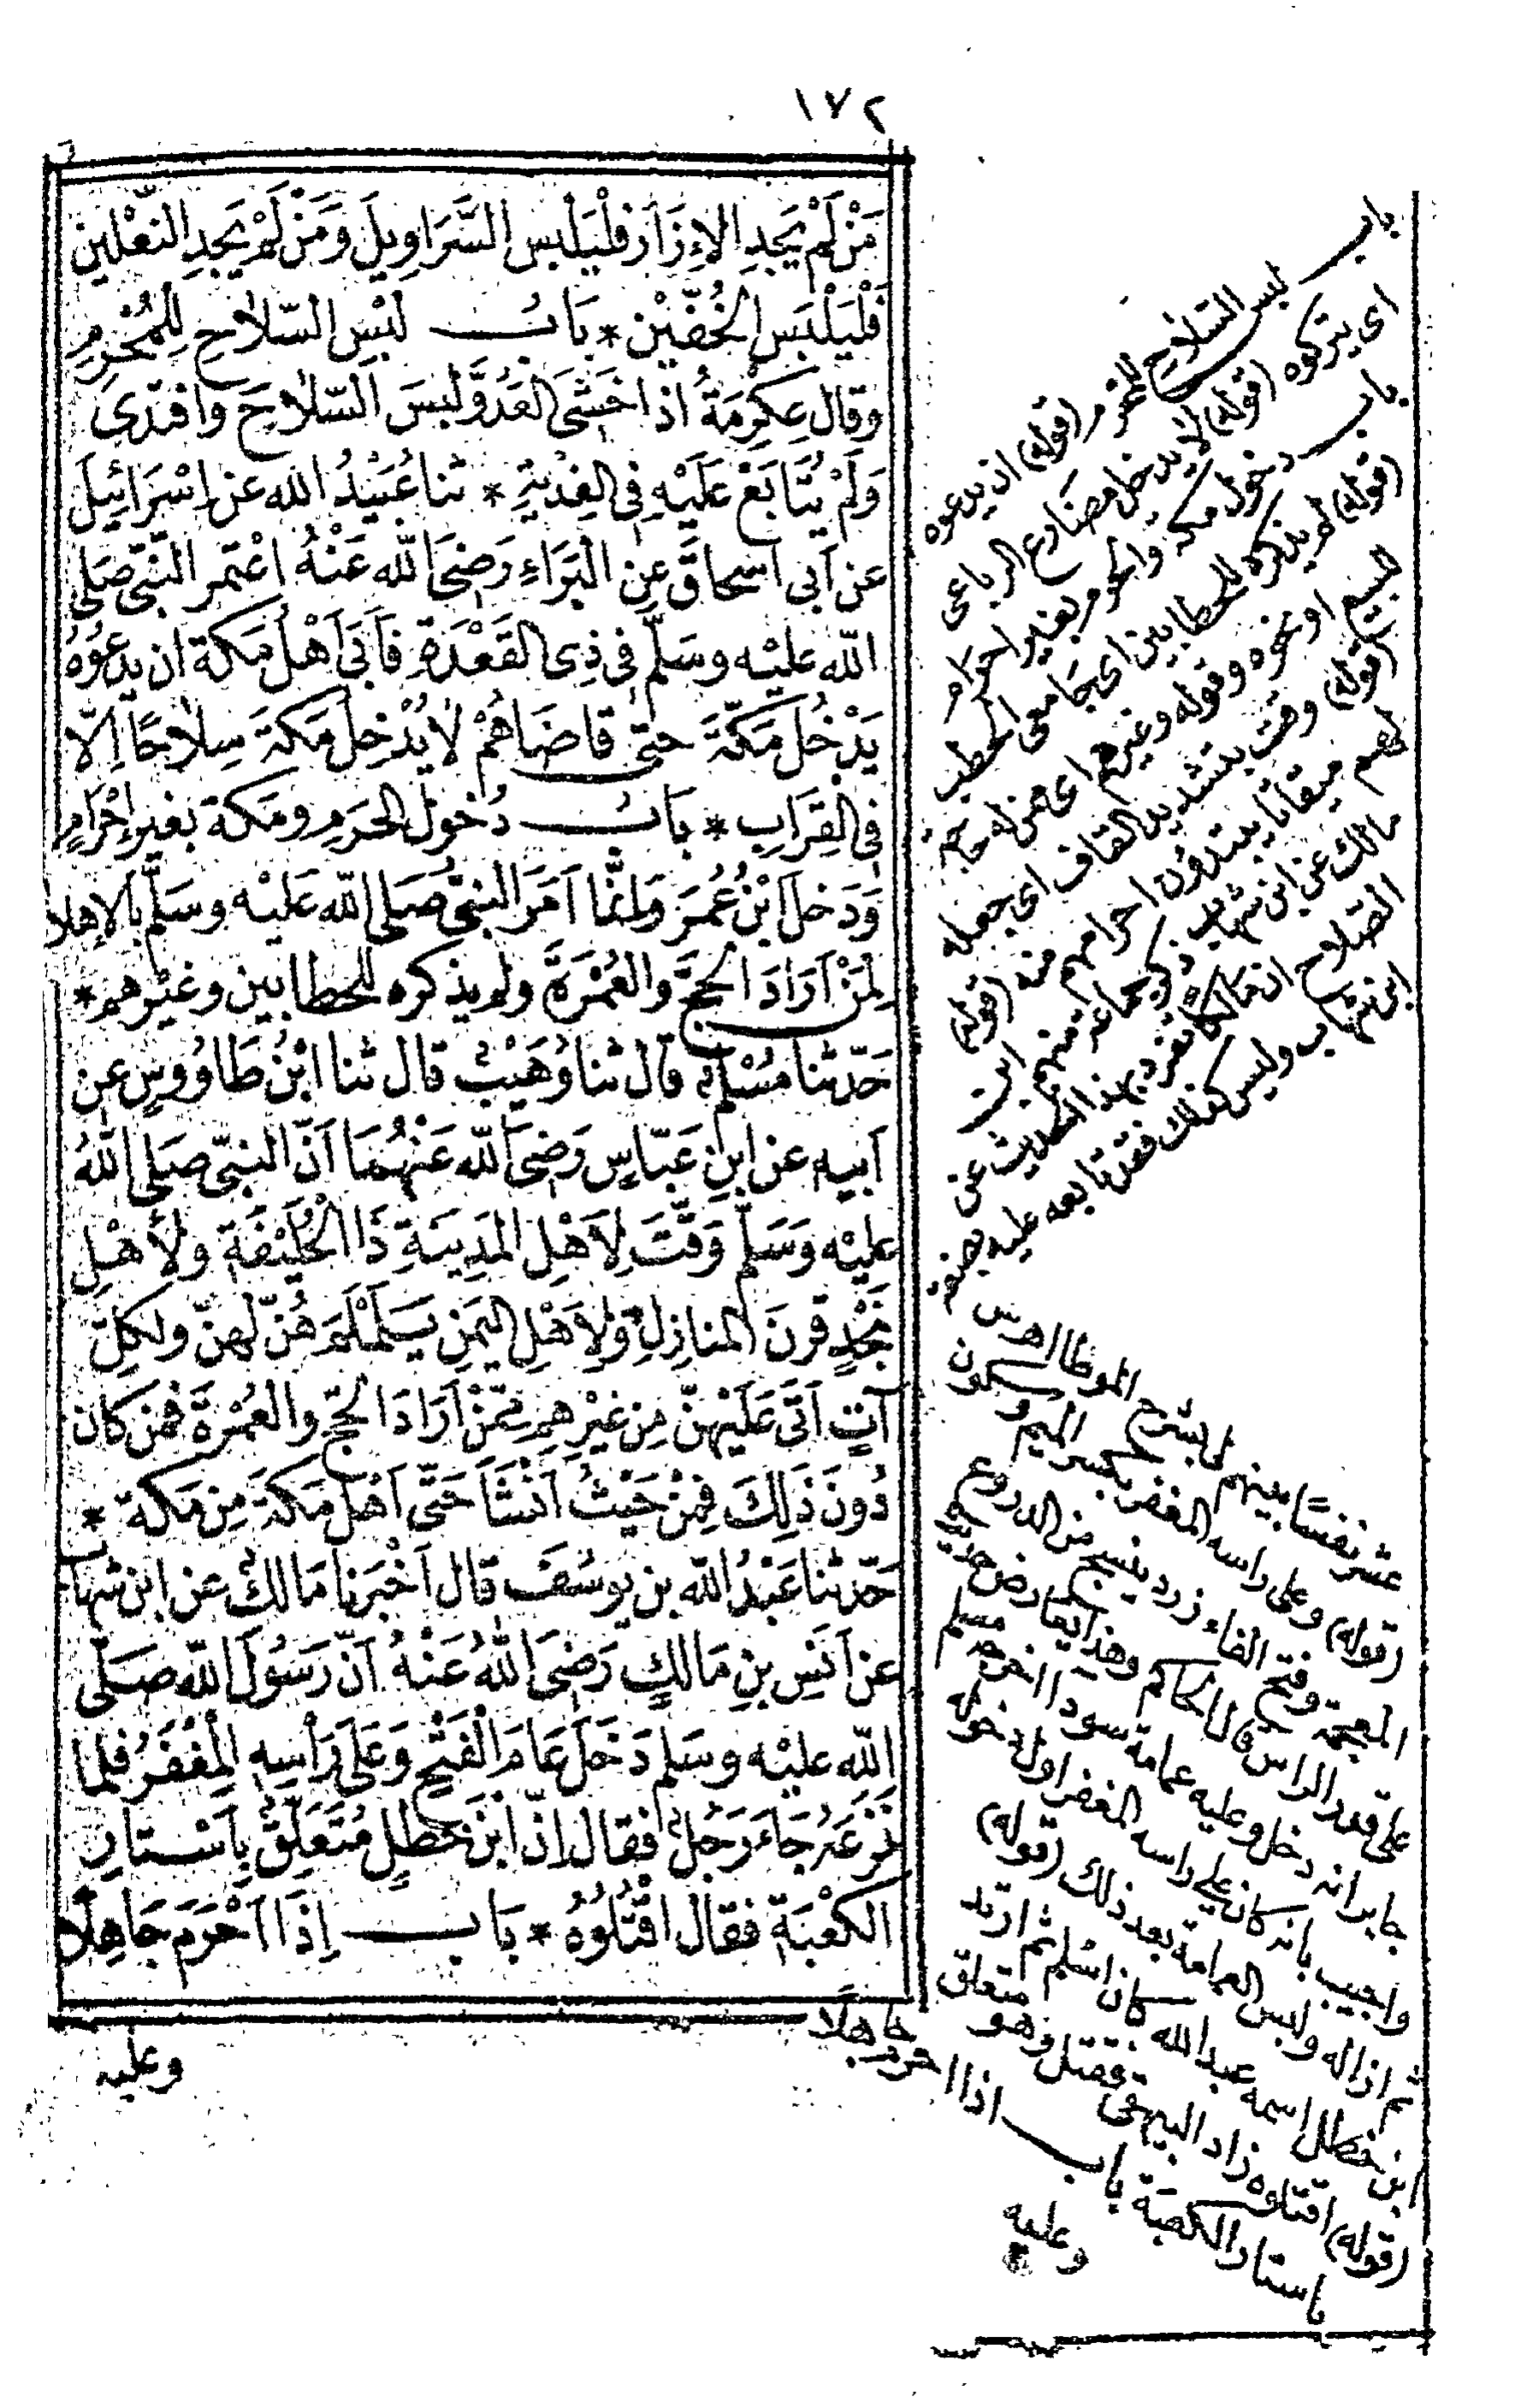 ١٧٢
مَنْ لَمْ يَجِدِ الإِزَارَ فَلْيَلْبَسِ السَّرَاوِيلَ وَمَنْ لَمْ يَجِدِ النَّعْلَيْنِ
فَلْيَلْبَسِ الخُفَّيْنِ * بَابُ لُبْسِ السّلاَحِ لِلْمُحْرِمِ
وقال عِكْرِمَةُ اذا خَشِىَ العَدُوَّ لَبِسَ السّلاَحَ وَافْتَدَى
وَلَمْ يُتَابَعْ عَلَيْهِ فِى الفِدْيَةِ * ثنا عُبَيْدُ الله عن إِسْرَائِيلَ
عن أبى اسحاقَ عنِ البَرَاءِ رَضىَ الله عَنْهُ اعْتَمَر النّبىّ صَلى
الله عليْه وسَلّم فى ذِى القَعْدَةِ فَأبَى أَهْلُ مَكةَ ان يدَعُوُهُ
يَدْخُلُ مَكّةَ حتى قاضَاهُمْ لاَ يُدْخِلُ مَكةَ سِلاَحًا إلّا
فى القِرَابِ * بَابُ دُخولِ الحَرَمِ ومَكةَ بغيرِ إِحْرَامٍ
وَدَخلَ ابْنُ عُمَرَ وَإنَّمَا أَمَرَ النبىُّ صَلى الله عَليْه وسَلّم بالإهلال
لِمَنْ أَرَادَ الحَجَّ والعُمْرَةَ ولم يذكره للحَطابين وغيْرهم *
حَدّثنا مُسْلِمٌ قال ثنا وُهَيْبٌ قال ثنا ابْنُ طَاوُوسٍ عن
أبيهِ عن ابنِ عَبّاسٍ رَضىَ الله عَنْهُمَا أنّ النبىّ صَلى اللهُ
عليْه وَسَلّم وَقَّتَ لِأَهْلِ المَدِينَةِ ذَا الْحُلَيْفَةِ ولأهْلِ
نَجْدٍ قَرْنَ المنازِلِ وَلِأَهْلِ اليَمَنِ يَلَمْلَمَ هُنّ لهُنّ ولكلِّ
آتٍ أَتَى عَلَيْهنّ مِن غيْرِهِم مِمَّنْ أَرَادَ الحَجّ والعُمْرَةَ فمن كان
دُونَ ذَلِكَ فَمِنْ حَيْثُ أَنْشَأَ حَتّى أَهْلُ مَكةَ مِن مَكةَ *
حَدّثنا عَبْدُ الله بن يوسُفَ قال أَخْبَرنا مَالكٌ عن ابن شهاب
عن أنَسِ بنِ مَالكٍ رَضىَ اللهُ عَنْهُ أنّ رَسُولَ الله صَلّى
الله عليْه وسَلم دَخَلَ عَامَ الْفَتْحِ وَعَلَى رَأْسِهِ المِغْفَرُ فلما
نَزعَهُ جَاءَ رَجُلٌ فقال إنّ ابْنَ خَطَلٍ مُتَعَلِّقٌ بِأَسْتَارِ
الكَعْبَةِ فقال اقْتُلوُهُ * بَاب إِذَا أَحْرَمَ جَاهِلًا
وعليه
باب لبس السّلاح للمحرم (قوله) ان يدعوه
اى يتركوه (قوله) لا يدخل مضارع الرباعى
باب دخول مكة والحرم بغير احرام
(قوله) لم يذكره للحطابين اى جامعى الحطب
للبيع او غيره وقوله وغيرهم اى ممن له حاجة
(قوله) وقت بتشديد القاف اى جعل
لهم ميقاتا يبتدؤن احرامهم منه (قوله)
مالك عن ابن شهاب ذكر جماعة منهم ابن
الصلاح ان مالكا تفرد بهذا الحديث عن
ابن شهاب وليس كذلك فقد تابعه عليه بضعة
عشر نفسًا بينهم فى شرح الموطا اهـ س
(قوله) وعلى راسه المغفر بكسر الميم وسكون
المعجمة وفتح الفاء زرد ينسج من الدروع
على قدر الراس قال الحاكم وهذا يعارض حديث
جابر انه دخل وعليه عمامة سودا اخرجه مسلم
واجيب بانه كان على راسه المغفر اول دخوله
ثم ازاله ولبس العمامة بعد ذلك (قوله)
ابن خطل اسمه عبد الله كان اسلم ثم ارتد
(قوله) اقتلوه زاد البيهقى فقتل وهو متعلق
باستار الكعبة باب اذا احرم جاهلًا
وعليه